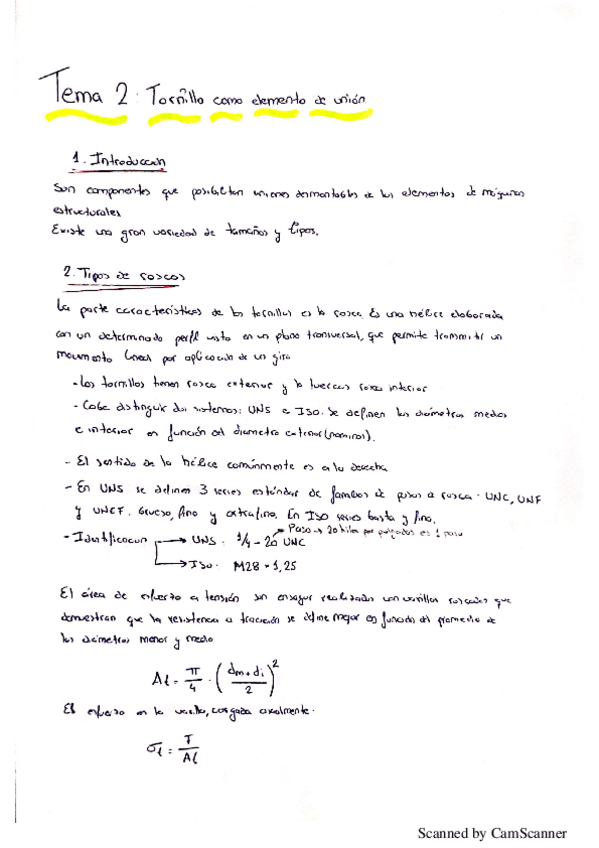 Tema 2: Tornillo como elemento de unión
1. Introducción
Son componentes que posibiliten uniones desmontables de los elementos de máquinas
estructurales
Existe una gran variedad de tamaños y tipos.
2. Tipos de roscas
La parte característicos de los tornillos es la rosca. Es una hélice elaborada
con un determinado perfil visto en un plano transversal, que permite transmitir un
movimiento lineal por aplicación de un giro
- Los tornillos tienen rosca exterior y la tuercas rosca interior
- Cabe distinguir dos sistemas: UNS e ISO. Se definen los diámetros medios
e interior en función del diametro exterior (nominal).
- El sentido de la hélice comúnmente es a la derecha
- En UNS se definen 3 series estándar de familias de pasos de rosca: UNC, UNF
y UNEF. Grueso, fino y extrafino. En ISO series basta y fina.
Paso → 20 hilos por pulgadas es 1 paso
- Identificacion → UNS: 1/4 - 20 UNC
→ ISO: M28 × 1,25
El área de esfuerzo a tensión son ensayos realizados con varillas roscadas que
demuestran que la resistencia a tracción se define mejor en función del promedio de
los diámetros menor y medio
At = π/4 · (dm + di / 2)²
El esfuerzo en la varilla, cargada axialmente.
σt = T/At
Scanned by CamScanner